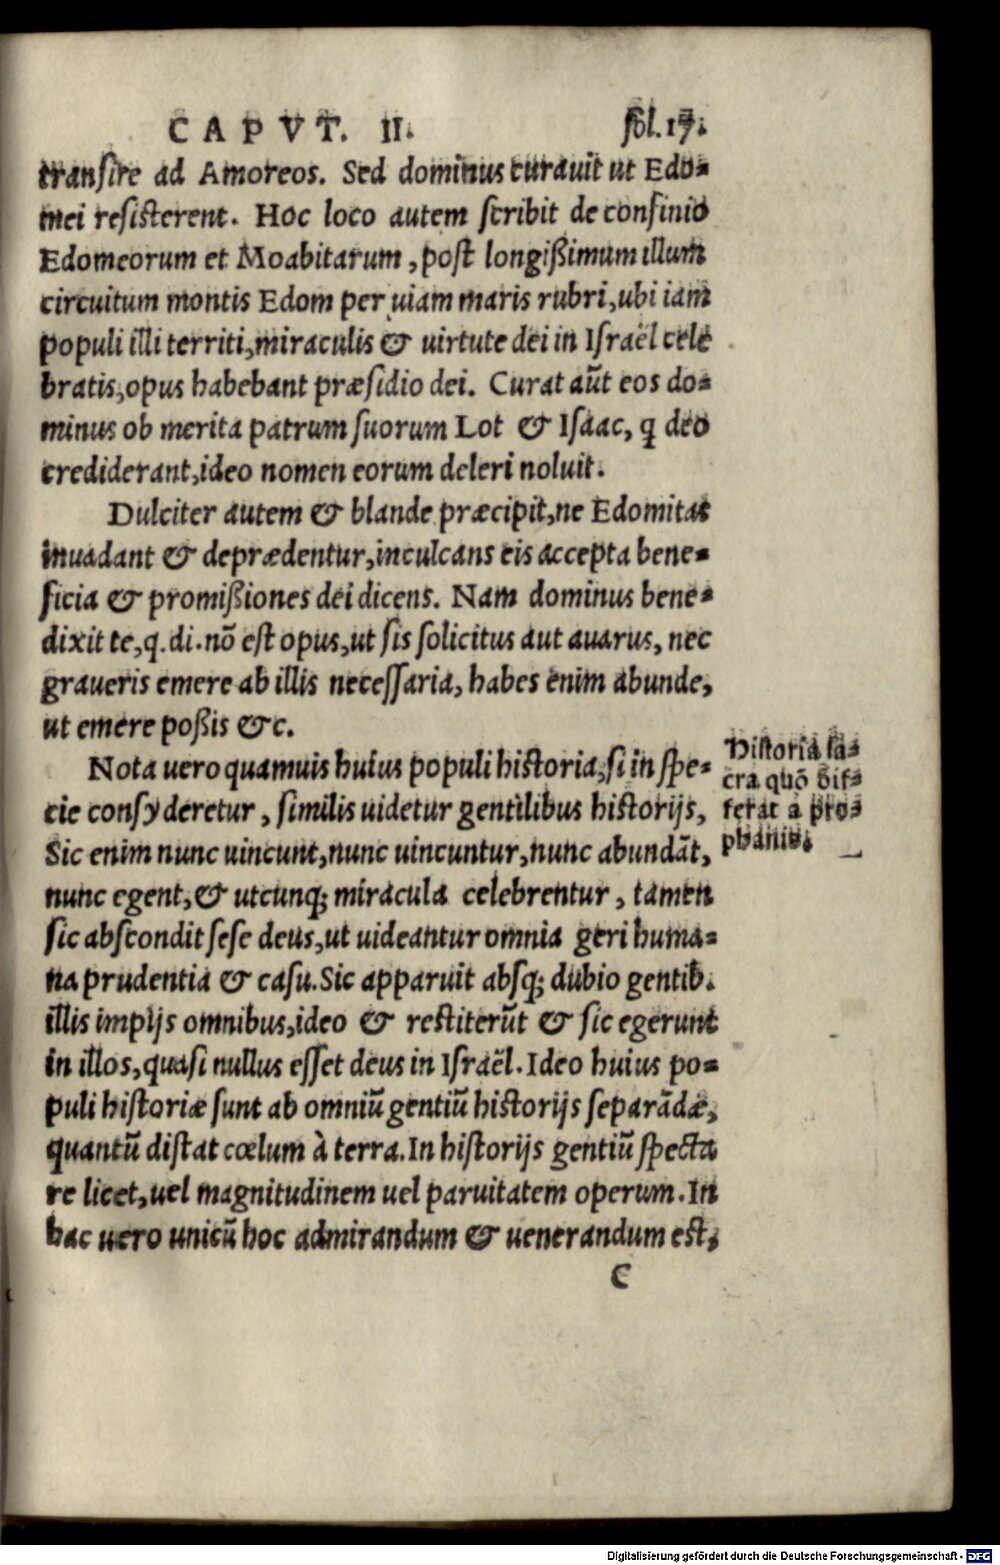 CAPVT. II. fol. 17.
transire ad Amoreos. Sed dominus curauit ut Edo-
mei resisterent. Hoc loco autem scribit de confinio
Edomeorum et Moabitarum, post longißimum illum
circuitum montis Edom per uiam maris rubri, ubi iam
populi illi territi, miraculis & uirtute dei in Israël cele
bratis, opus habebant præsidio dei. Curat aūt eos do-
minus ob merita patrum suorum Lot & Isaac, q̃ deo
crediderant, ideo nomen eorum deleri noluit.
Dulciter autem & blande præcipit, ne Edomitas
inuadant & deprædentur, inculcans eis accepta bene-
ficia & promißiones dei dicens. Nam dominus bene-
dixit te, q. di. nō est opus, ut sis solicitus aut auarus, nec
graueris emere ab illis necessaria, habes enim abunde,
ut emere poßis &c.
Nota uero quamuis huius populi historia, si in spe-
cie consyderetur, similis uidetur gentilibus historijs,
Sic enim nunc uincunt, nunc uincuntur, nunc abundāt,
nunc egent, & utcunq; miracula celebrentur, tamen
sic abscondit sese deus, ut uideantur omnia geri huma-
na prudentia & casu. Sic apparuit absq; dubio gentib.
illis impijs omnibus, ideo & restiterūt & sic egerunt
in illos, quasi nullus esset deus in Israël. Ideo huius po-
puli historiæ sunt ab omniū gentiū historijs separādæ,
quantū distat cœlum à terra. In historijs gentiū specta
re licet, uel magnitudinem uel paruitatem operum. In
hac uero unicū hoc admirandum & uenerandum est,
C
Historia sa-
cra quō dif-
ferat a pro-
phanis.
Digitalisierung gefördert durch die Deutsche Forschungsgemeinschaft - DFG